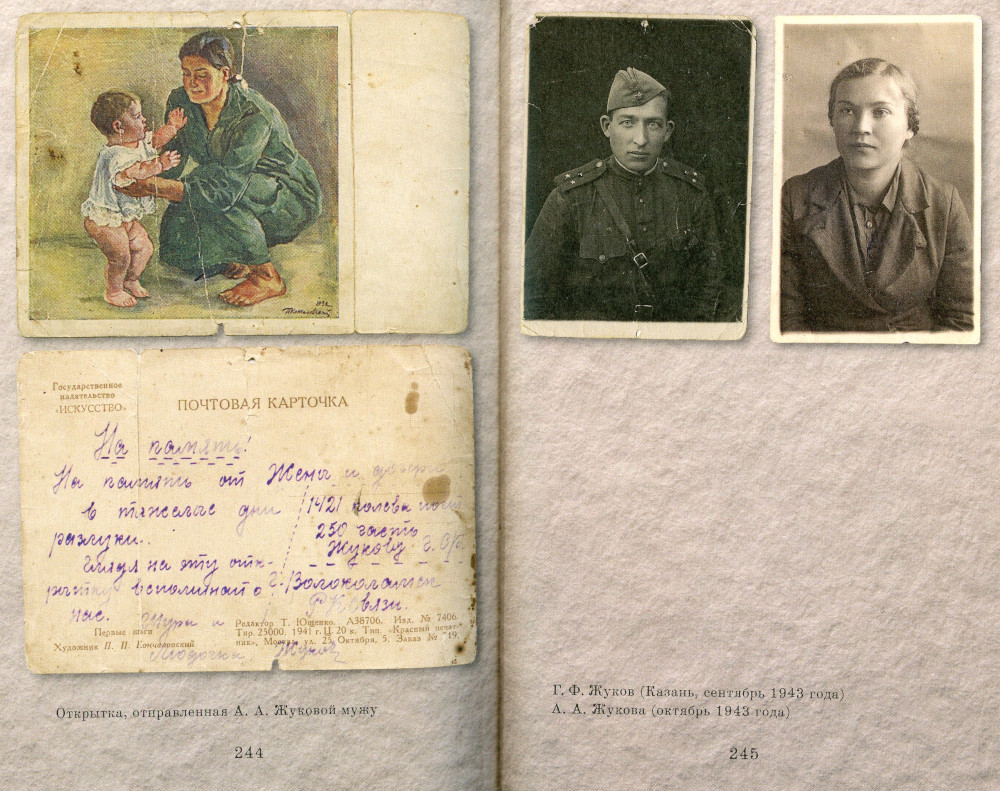 Государственное
издательство
«ИСКУССТВО»
ПОЧТОВАЯ КАРТОЧКА
На память!
На память от Жены и дочери
в тяжелые дни
разлуки..
Глядя на эту отк-
рытку вспоминай о
нас.
1421 полева почт
250 часть
Жукову Г.
г. Волоколамск
Р К Связи.
Шура и
Людочка Жуков
Первые шаги
Художник П. П. Кончаловский
Редактор Т. Ющенко. А38706. Изд. № 7406.
Тир. 25000. 1941 г. Ц. 20 к. Тип. «Красный печат-
ник», Москва, ул. 25 Октября, 5. Заказ № 19.
Открытка, отправленная А. А. Жуковой мужу
244
Г. Ф. Жуков (Казань, сентябрь 1943 года)
А. А. Жукова (октябрь 1943 года)
245